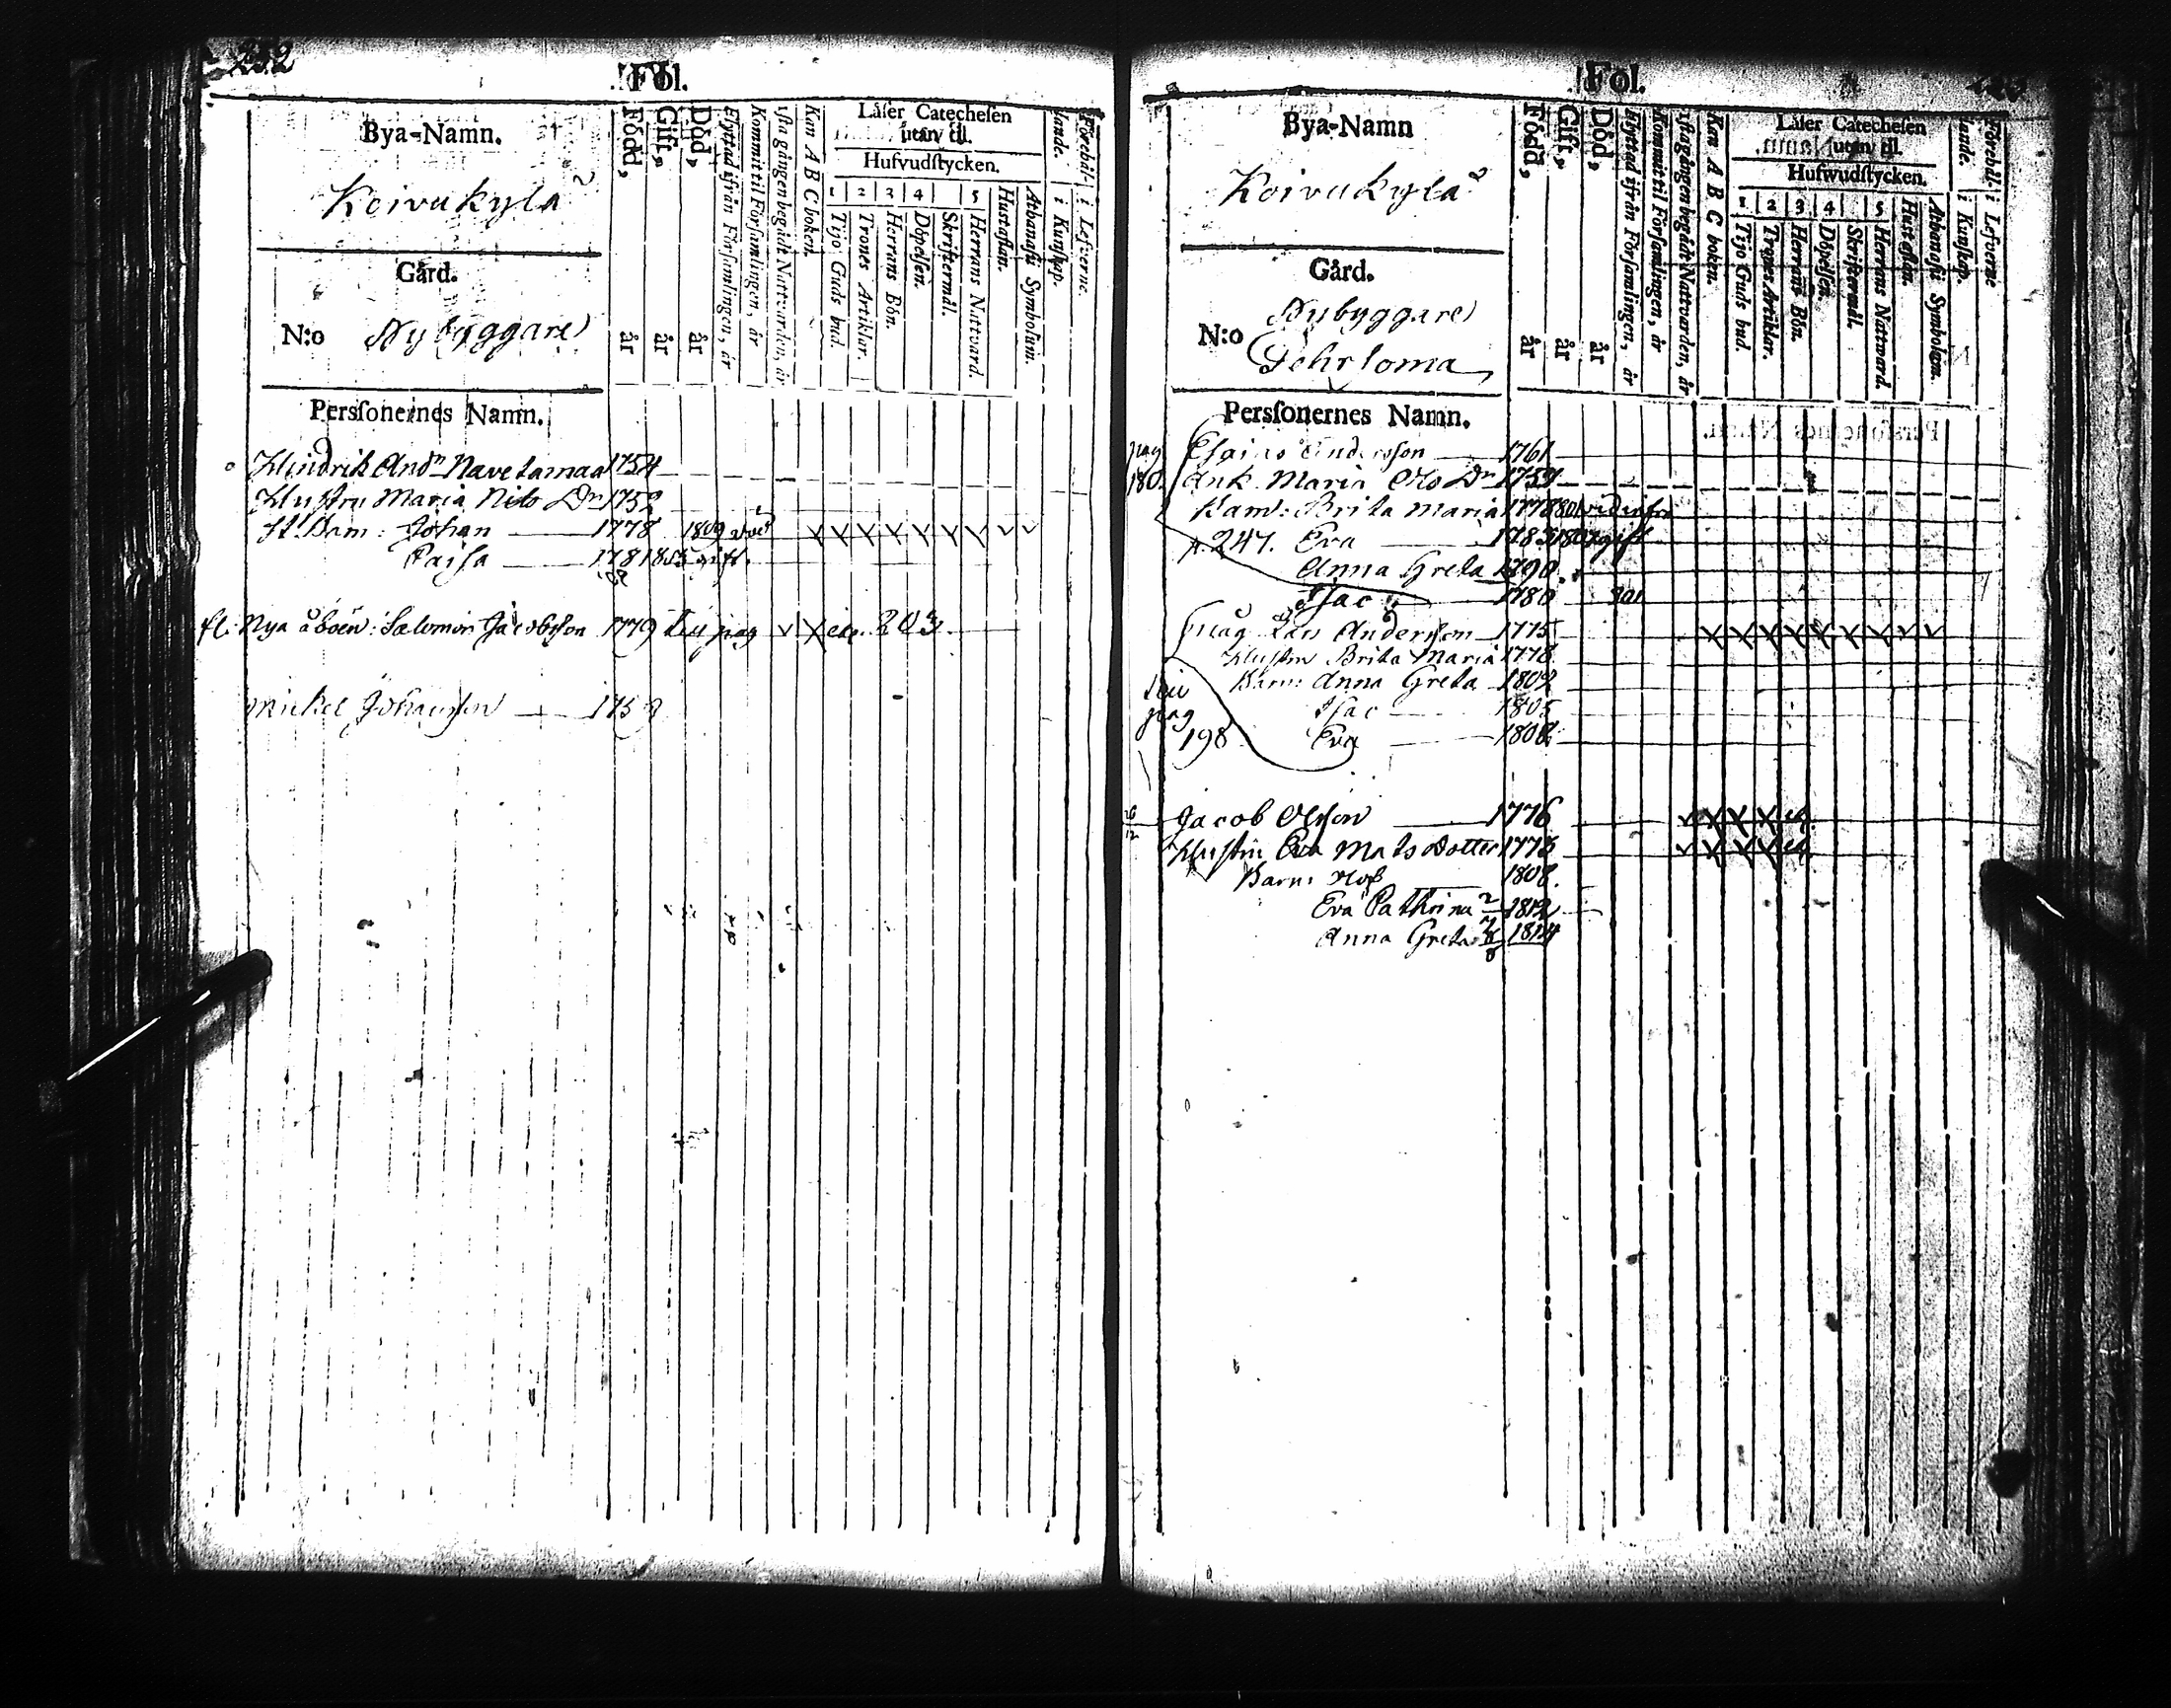 232
Fol.
Bya-Namn.
Koivukylä
Gård.
N:o Nybyggare
Persſonernes Namn.
Född, år
Gift, år
Död, år
Flyttad ifrån Församlingen, år
Kommit til Församlingen, år
1sta gången begådt Nattvarden, år
Kan A B C boken.
Läſer Catecheſen utan til.
Hufvudſtycken.
1 2 3 4 5
Tijo Guds bud.
Trones Artiklar.
Herrans Bön.
Döpelſen.
Skriftermål.
Herrans Nattvard.
Hustaflan.
Athanaſii Symbolum.
Förebål-lande.
i Kunſkap.
i Lefverne.
Hindrik And:n Navetamaa 1754
Hustru Maria Nils D:r 1752
St. Barn: Johan 1778 1809
Caisa 1781 gift.
fl: Nya åboen: Salomon Jacobsson 1779 till pag
Mickel Johansson
Fol.
Bya-Namn
Koivukylä
Gård.
N:o Nybyggare
Pehrsoma
Persſonernes Namn.
Född, år
Gift, år
Död, år
Flyttad ifrån Församlingen, år
Kommit til Församlingen, år
1sta gången begådt Nattvarden, år
Kan A B C boken.
Läſer Catecheſen utan til.
Hufwudſtycken.
1 2 3 4 5
Tijo Guds bud.
Trones Artiklar.
Herrans Bön.
Döpelſen.
Skriftermål.
Herrans Natward.
Hustaflan.
Athanaſii Symbolum.
Förebål-lande.
i Kunſkap.
i Lefverne
pag Esaias Andersson 1761
180. Ank. Maria Ols D:r 1759
Barn: Brita Maria 1778
p. 247. Eva 1783 gift
Anna Greta 1790
Isac 1780
måg Lars Andersson 1775
Hustru Brita Maria 1778
Barn: Anna Greta 1802
pag Isac 1805
198 Eva 1808
Jacob Olsson 1776
Hustru Eva Mats dotter 1773
Barn: Olof 1808.
Eva Cathrina 1812
Anna Greta 1814